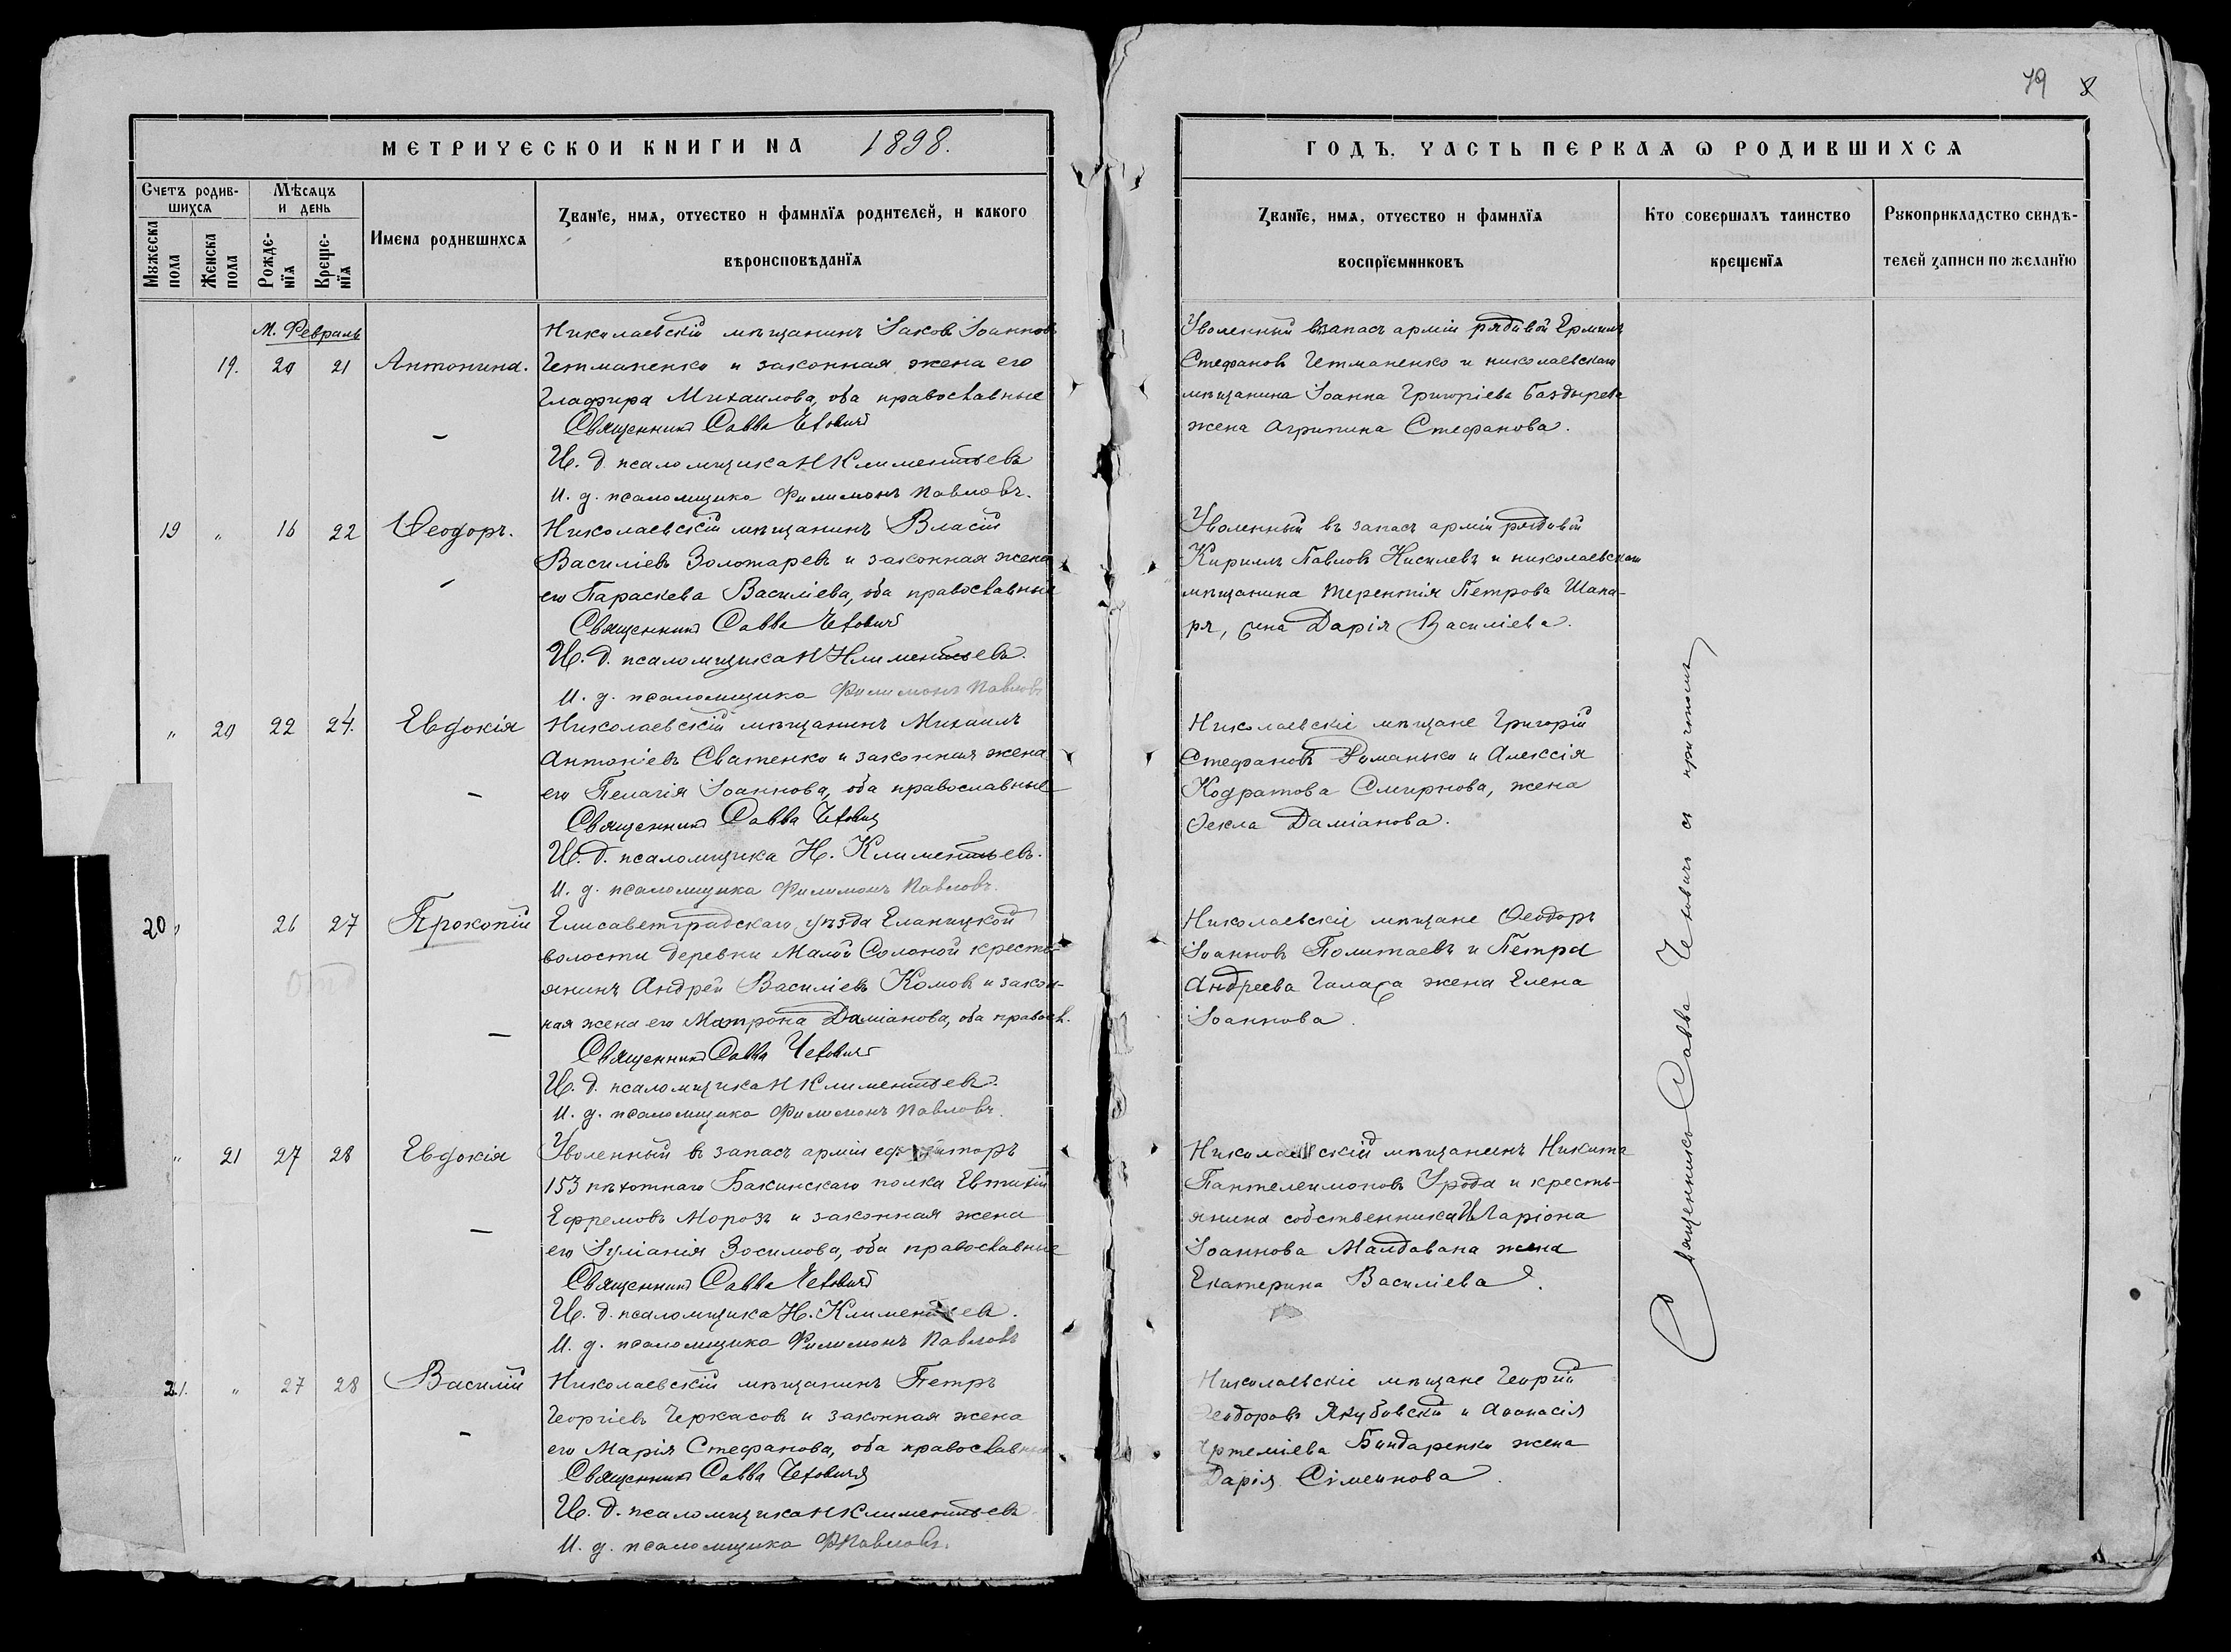 МЕТРИЧЕСКОЙ КНИГИ НА 1898.
Счетъ родив-
шихся
Мѣсяцъ
и день
Мужеска
пола
Женска
пола
Рожде-
нїя
Креще-
нїя
Имена родившихся
Званїе, имя, отчество и фамилїя родителей, и какого
вѣроисповѣданїя
М. Февраль
19. 20 21 Антонина.
Николаевскій мѣщанинъ Іаковъ Іоанновъ
Гетманенко и законная жена его
Глафира Михаилова, оба православные
Священникъ Савва Чехович
И. д. псаломщика Н Климентьевъ
И. д. псаломщика Филимонъ Павловъ.
19 „ 16 22 Ѳеодоръ.
Николаевскій мѣщанинъ Власій
Василіевъ Золотаревъ и законная жена
его Параскева Василіева, оба православные
Священникъ Савва Чехович
И. д. псаломщика Н Климентьевъ.
И. д. псаломщика Филимонъ Павловъ
„ 20 22 24. Евдокія
Николаевскій мѣщанинъ Михаилъ
Антоніевъ Сватенко и законная жена
его Пелагія Іоаннова, оба православные
Священникъ Савва Чехович
И. д. псаломщика Н. Климентьевъ.
И. д. псаломщика Филимонъ Павловъ.
20 „ 26 27 Прокопій
Елисаветградскаго уѣзда Еланицкой
волости деревни Малой Солоной кресть-
янинъ Андрей Василіевъ Комовъ и закон-
ная жена его Матрона Даміанова, оба правосл.
Священникъ Савва Чехович
И. д. псаломщика Н Климентьевъ.
И. д. псаломщика Филимонъ Павловъ.
„ 21 27 28 Евдокія
Уволенный въ запасъ арміи ефрейторъ
153 пѣхотнаго Бакинскаго полка Евтихій
Ефремовъ Морозъ и законная жена
его Іуліанія Зосимова, оба православные
Священникъ Савва Чехович
И. д. псаломщика Н. Климентьевъ.
И. д. псаломщика Филимонъ Павловъ
21. „ 27 28 Василій
Николаевскій мѣщанинъ Петръ
Георгіевъ Черкасовъ и законная жена
его Марія Стефанова, оба православные
Священникъ Савва Чехович
И. д. псаломщика Н Климентьевъ
И. д. псаломщика Ф Павловъ.
79 8
ГОДЪ, ЧАСТЬ ПЕРВАЯ Ѡ РОДИВШИХСЯ
Званїе, имя, отчество и фамилїя
воспрїемниковъ
Кто совершалъ таинство
крещенїя
Рукоприкладство свидѣ-
телей записи по желанїю
Уволенный въ запасъ арміи рядовой Ермилъ
Стефановъ Гетманенко и николаевскаго
мѣщанина Іоанна Григоріева Баздырева
жена Агрипина Стефанова.
Уволенный въ запасъ арміи рядовой
Кириллъ Павловъ Киселевъ и николаевскаго
мѣщанина Терентія Петрова Шапа-
ря, Дарія Василіева.
Николаевскіе мѣщане Григорій
Стефановъ Романько и Алексія
Кодратова Смирнова, жена
Ѳекла Даміанова.
Николаевскіе мѣщане Ѳеодоръ
Іоанновъ Политаевъ и Петра
Андреева Галаса жена Елена
Іоаннова.
Николаевскій мѣщанинъ Никита
Пантелеимоновъ Урода и кресть-
янина собственника Иларіона
Іоаннова Малдавана жена
Екатерина Василіева.
Николаевскіе мѣщане Георгій
Ѳеодоровъ Якубовскій и Аѳанасія
Артеміева Бондаренко жена
Дарія Сімеонова.
Священникъ Савва Чеховичъ съ причтомъ